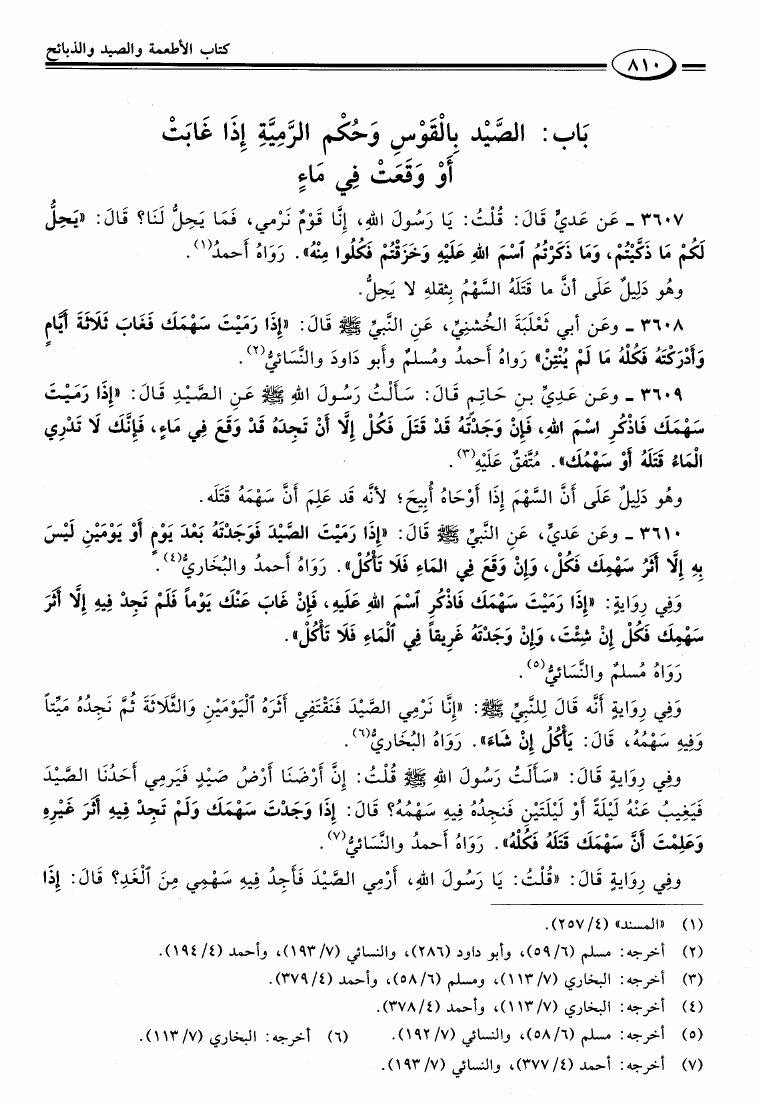 كتاب الأطعمة والصيد والذبائح
٨١٠
بَاب: الصَّيْد بِالْقَوْسِ وَحُكْم الرَّمِيَّةِ إِذَا غَابَتْ
أَوْ وَقَعَتْ فِي مَاءٍ
٣٦٠٧ ـ عَن عَدِيٍّ قَالَ: قُلْتُ: يَا رَسُولَ اللهِ، إِنَّا قَوْمٌ نَرْمِي، فَمَا يَحِلُّ لَنَا؟ قَالَ: «يَحِلُّ
لَكُمْ مَا ذَكَّيْتُمْ، وَمَا ذَكَرْتُمُ ٱسْمَ اللهِ عَلَيْهِ وَخَزَقْتُمْ فَكُلُوا مِنْهُ». رَوَاهُ أَحمدُ(١).
وهُو دَلِيلٌ عَلَى أنَّ ما قَتَلَهُ السَّهْمُ بِثقلهِ لا يَحِلُّ.
٣٦٠٨ ـ وعَن أبي ثَعْلَبَةَ الخُشنِيِّ، عَنِ النَّبيِّ ﷺ قَالَ: «إِذَا رَمَيْتَ سَهْمَكَ فَغَابَ ثَلَاثَةَ أَيَّامٍ
وَأَدْرَكْتَهُ فَكُلْهُ مَا لَمْ يُنْتِنْ» رَواهُ أَحمدُ ومُسلمٌ وأبو داودَ والنَّسائيُّ(٢).
٣٦٠٩ ـ وعَن عَدِيِّ بنِ حَاتِمٍ قَالَ: سَأَلْتُ رَسُولَ اللهِ ﷺ عَنِ الصَّيْدِ قَالَ: «إِذَا رَمَيْتَ
سَهْمَكَ فَاذْكُرِ اسْمَ اللهِ، فَإِنْ وَجَدْتَهُ قَدْ قَتَلَ فَكُلْ إِلَّا أَنْ تَجِدَهُ قَدْ وَقَعَ فِي مَاءٍ، فَإِنَّكَ لَا تَدْرِي
الْمَاءُ قَتَلَهُ أَوْ سَهْمُكَ». مُتَّفقٌ عَلَيْهِ(٣).
وهُو دَلِيلٌ عَلَى أَنَّ السَّهْمَ إِذَا أَوْحَاهُ أُبِيحَ؛ لأنَّه قد عَلِمَ أَنَّ سَهْمَهُ قَتَلَه.
٣٦١٠ ـ وعَن عَدِيٍّ، عَنِ النَّبيِّ ﷺ قَالَ: «إِذَا رَمَيْتَ الصَّيْدَ فَوَجَدْتَهُ بَعْدَ يَوْمٍ أَوْ يَوْمَيْنِ لَيْسَ
بِهِ إِلَّا أَثَرُ سَهْمِكَ فَكُلْ، وَإِنْ وَقَعَ فِي المَاءِ فَلَا تَأْكُلْ». رَوَاهُ أَحمدُ والبُخَاريُّ(٤).
وَفِي رِوَايَةٍ: «إِذَا رَمَيْتَ سَهْمَكَ فَاذْكُرِ ٱسْمَ اللهِ عَلَيهِ، فَإِنْ غَابَ عَنْكَ يَوْماً فَلَمْ تَجِدْ فِيهِ إِلَّا أَثَرَ
سَهْمِكَ فَكُلْ إِنْ شِئْتَ، وَإِنْ وَجَدْتَهُ غَرِيقاً فِي ٱلْمَاءِ فَلَا تَأْكُلْ».
رَوَاهُ مُسلمٌ والنَّسائيُّ(٥).
وَفِي رِوَايَةٍ أَنَّه قَالَ لِلنَّبيِّ ﷺ: «إِنَّا نَرْمِي الصَّيْدَ فَنَقْتَفِي أَثَرَهُ ٱلْيَوْمَيْنِ وَالثَّلَاثَةَ ثُمَّ نَجِدُهُ مَيِّتاً
وَفِيهِ سَهْمُهُ، قَالَ: يَأْكُلُ إِنْ شَاءَ». رَوَاهُ البُخَاريُّ(٦).
وفِي رِوَايةٍ قَالَ: «سَأَلْتُ رَسُولَ اللهِ ﷺ قُلْتُ: إِنَّ أَرْضَنَا أَرْضُ صَيْدٍ فَيَرمِي أَحَدُنَا الصَّيْدَ
فَيَغِيبُ عَنْهُ لَيْلَةً أَوْ لَيْلَتَيْنِ فَنجِدُهُ فِيهِ سَهْمُهُ؟ قَالَ: إِذَا وَجَدْتَ سَهْمَكَ وَلَمْ تَجِدْ فِيهِ أَثَرَ غَيْرِهِ
وَعَلِمْتَ أَنَّ سَهْمَكَ قَتَلَهُ فَكُلْهُ». رَوَاهُ أَحمدُ والنَّسَائيُّ(٧).
وفِي رِوَايةٍ قَالَ: «قُلْتُ: يَا رَسُولَ اللهِ، أَرْمِي الصَّيْدَ فَأَجِدُ فِيهِ سَهْمِي مِنَ ٱلْغَدِ؟ قَالَ: إِذَا
(١) «المسند» (٤/ ٢٥٧).
(٢) أخرجه: مسلم (٦/ ٥٩)، وأبو داود (٢٨٦)، والنسائي (٧/ ١٩٣)، وأحمد (٤/ ١٩٤).
(٣) أخرجه: البخاري (٧/ ١١٣)، ومسلم (٦/ ٥٨)، وأحمد (٤/ ٣٧٩).
(٤) أخرجه: البخاري (٧/ ١١٣)، وأحمد (٤/ ٣٧٨).
(٥) أخرجه: مسلم (٦/ ٥٨)، والنسائي (٧/ ١٩٢). (٦) أخرجه: البخاري (٧/ ١١٣).
(٧) أخرجه: أحمد (٤/ ٣٧٧)، والنسائي (٧/ ١٩٣).